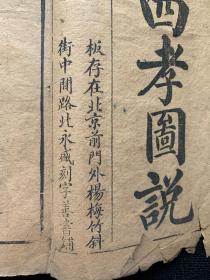 四孝圖説
板存在北京前門外楊梅竹斜
街中間路北永盛刻字善書鋪